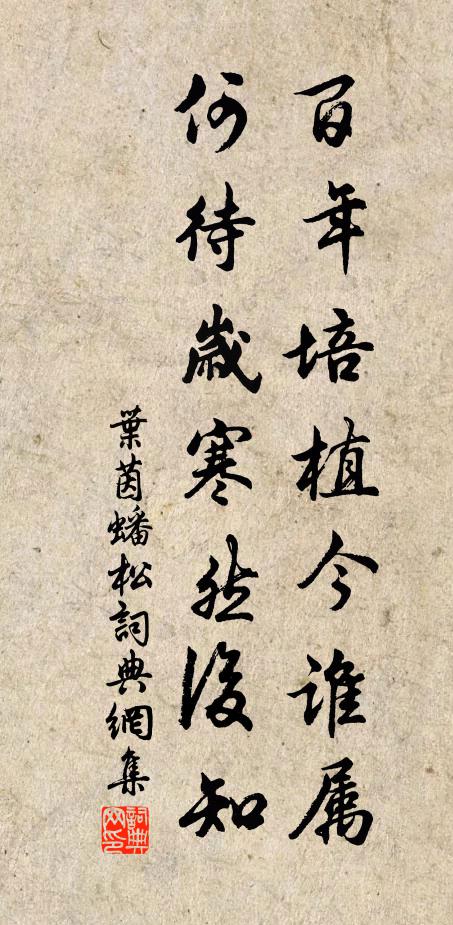 百年培植今谁属
何待歲寒然後知
葉茵蟠松詞典網集
詞典網印